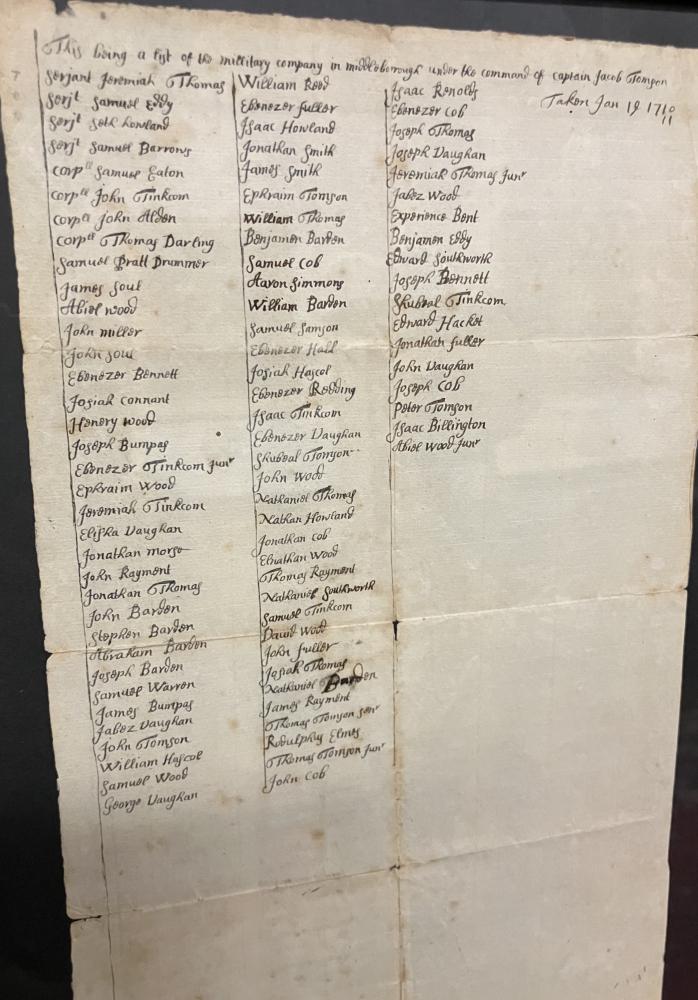 This being a list of the millitary company in middleborough under the command of captain Jacob Tomson
Taken Jan 19 1710/11
Serjant Jeremiah Thomas
Serjt Samuel Eddy
Serjt Seth howland
Serjt Samuel Barrows
corpll Samuel Eaton
corpll John Tinkcom
corpll John Alden
corpll Thomas Darling
Samuel Pratt Drummer
James Soul
Abiel wood
John miller
John Soul
Ebenezer Bennett
Josiah connant
Henery wood
Joseph Bumpas
Ebenezer Tinkcom junr
Ephraim Wood
Jeremiah Tinkcom
Elisha Vaughan
Jonathan morse
John Rayment
Jonathan Thomas
John Barden
Stephen Barden
Abraham Barden
Joseph Barden
Samuel Warren
James Bumpas
Jabez Vaughan
John Tomson
William Hascol
Samuel Wood
George Vaughan
William Reed
Ebenezer fuller
Isaac Howland
Jonathan Smith
James Smith
Ephraim Tomson
William Thomas
Benjamen Barden
Samuel Cob
Aaron Simmons
William Barden
Samuel Samson
Ebenezer Hall
Josiah Hascol
Ebenezer Redding
Isaac Tinkcom
Ebenezer Vaughan
Shubeal Tomson
John Wood
Nathaniel Thomas
Nathan Howland
Jonathan Cob
Elnathan Wood
Thomas Rayment
Nathaniel Southworth
Samuel Tinkcom
David Wood
John fuller
Josiah Thomas
Nathaniel Barden
James Rayment
Thomas Tomson Senr
Rodulphus Elmes
Thomas Tomson Junr
John Cob
Isaac Renolds
Ebenezer Cob
Joseph Thomas
Joseph Vaughan
Jeremiah Thomas Junr
Jabez Wood
Experience Bent
Benjamen Eddy
Edward Southworth
Joseph Bennett
Shubeal Tinkcom
Edward Hacket
Jonathan fuller
John Vaughan
Joseph Cob
Peter Tomson
Isaac Billington
Abiel Wood Junr